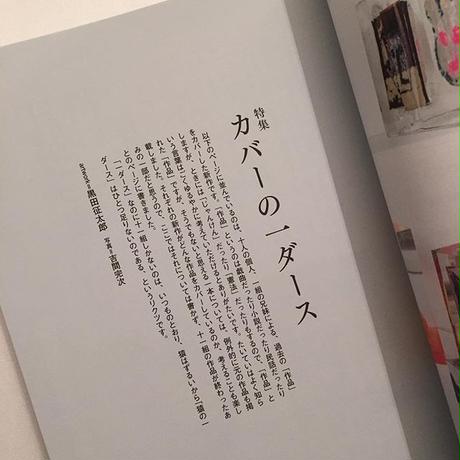 特集
カバーの一ダース
以下のページに並んでいるのは、十人の個人、一組の兄妹による、過去の「作品」
をカバーした新作です。「作品」というのは戯曲だったり小説だったり民話だったり
しますが、ときには「じゃんけん」だったり「憲法」だったりもするので、「作品」と
いう言葉はごくゆるやかに考えていただけるとありがたいです。たいていはよく知ら
れた「作品」ですが、そうでもないと思える一本については、例外的に元の作品も掲
載しました。それぞれの新作がどんな作品をカバーしているのか、考えることも楽し
みの一部だと思うので、ここではそれについては書かず、十一組の作品が終わったあ
とのページに書きました。
「一ダース」なのに十一組しかないのは、いつものとおり、猿はずるいから「猿の一
ダース」はひとつ足りないのである、というリクツです。
黒田征太郎
写真=吉間完次